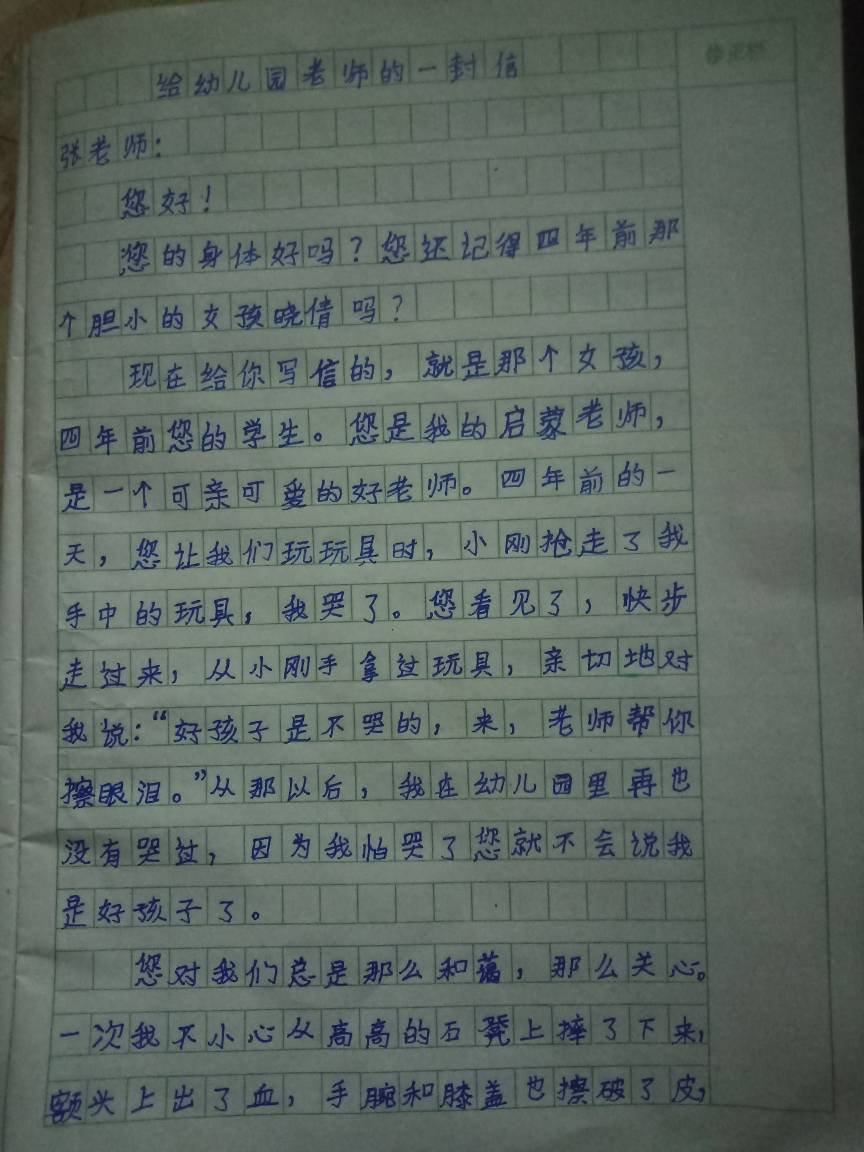 给幼儿园老师的一封信
修正栏
张老师：
您好！
您的身体好吗？您还记得四年前那
个胆小的女孩晓倩吗？
现在给你写信的，就是那个女孩，
四年前您的学生。您是我的启蒙老师，
是一个可亲可爱的好老师。四年前的一
天，您让我们玩玩具时，小刚抢走了我
手中的玩具，我哭了。您看见了，快步
走过来，从小刚手拿过玩具，亲切地对
我说：“好孩子是不哭的，来，老师帮你
擦眼泪。”从那以后，我在幼儿园里再也
没有哭过，因为我怕哭了您就不会说我
是好孩子了。
您对我们总是那么和蔼，那么关心。
一次我不小心从高高的石凳上摔了下来，
额头上出了血，手腕和膝盖也擦破了皮，